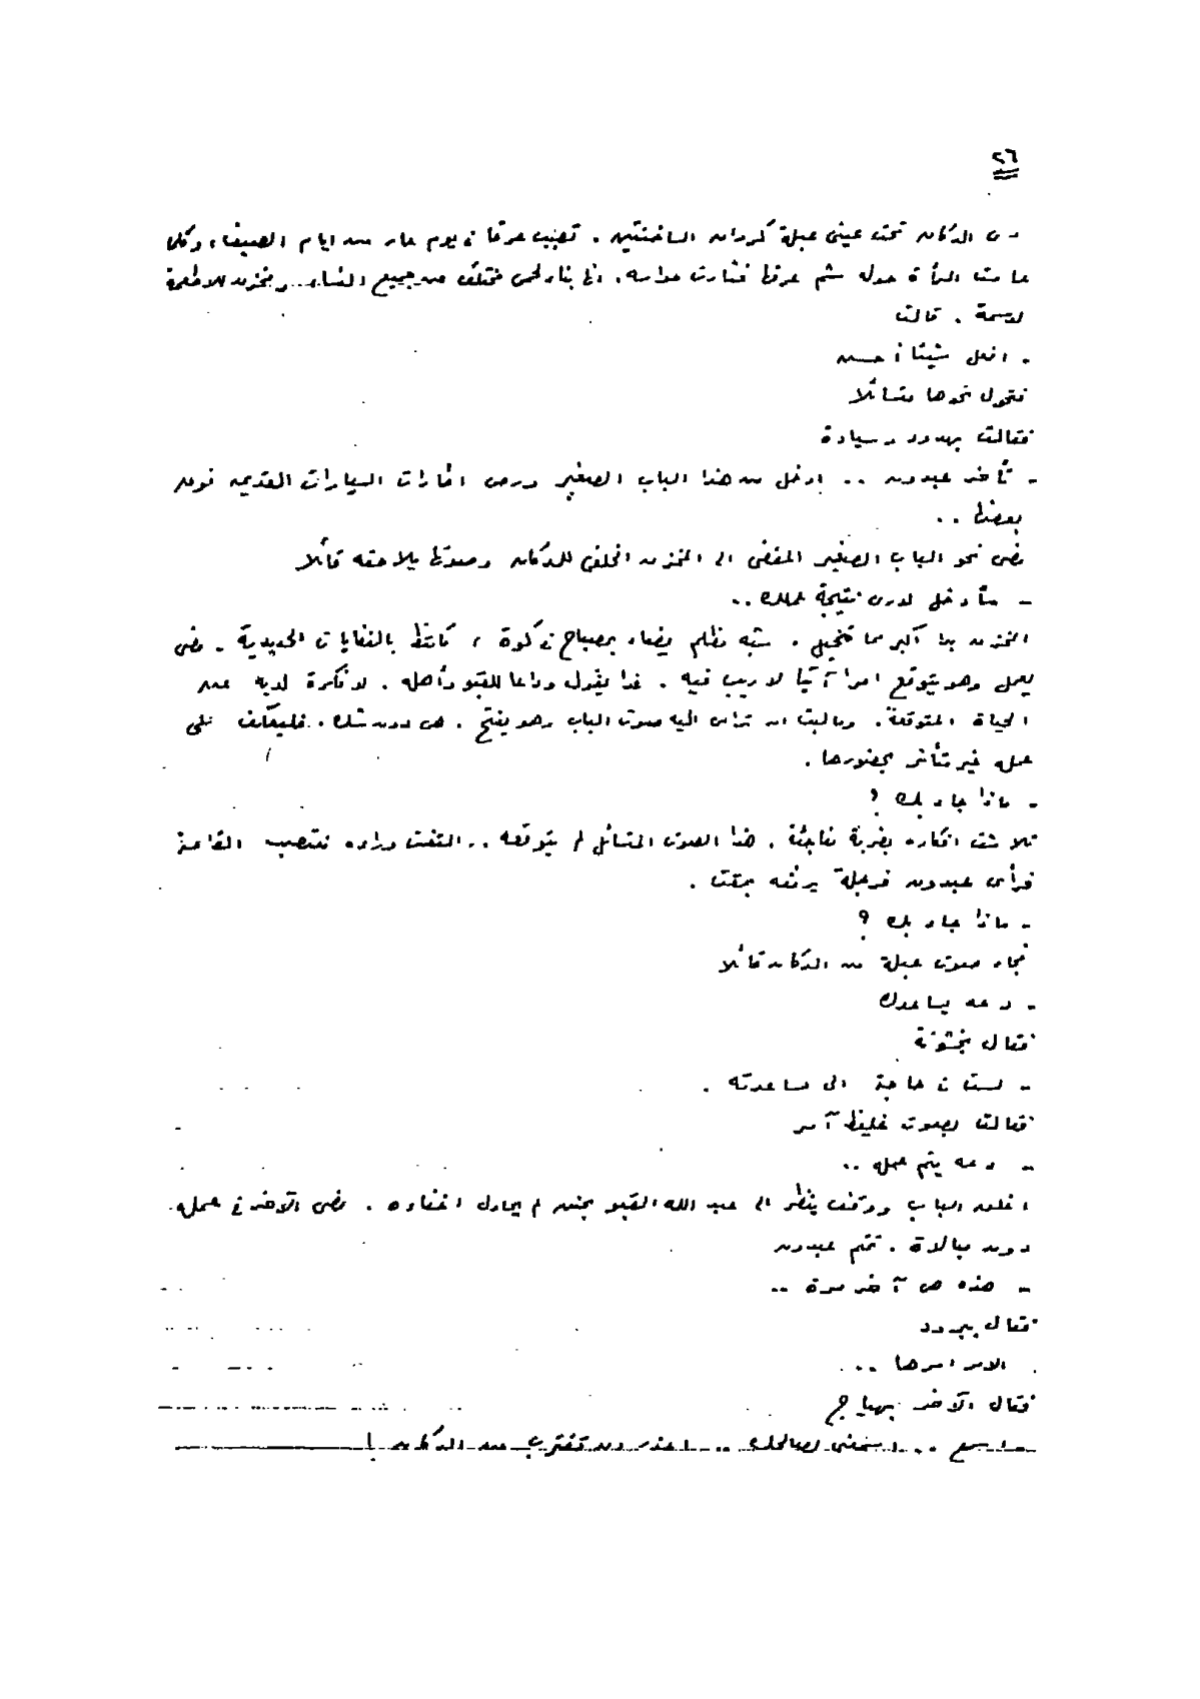 ٢٦
الدكان تحت عيني عبلة كردان الساخنتين . تصبب عرقا في يوم حار من ايام الصيف ، وكلما
حامت المرأة حوله شم عرقها فثارت حواسه . انها بنار لحمى مختلف عن جميع النساء .. ومخزن للاطعمة
الدسمة . قالت
- افعل شيئا أحسن
فتحول نحوها متسائلا
فقالت بهدوء وسيادة
- تأخر عبدون .. ادخل من هذا الباب الصغير ورص اطارات السيارات القديمة فوق
بعضها ..
مضى نحو الباب الصغير المفضى الى المخزن الخلفي للدكان وصوتها يلاحقه قائلا
- سأدخل لارى نتيجة عملك ..
المخزن بدا أكبر مما تخيل . شبه مظلم يضاء بمصباح في كوة ، مكتظ بالنفايات الحديدية . مضى
يعمل وهو يتوقع امرا آتيا لا ريب فيه . غدا يقول وداعا للقبو وأهله . لا فكرة لديه عن
الحياة المتوقعة . وما لبث ان ترامى اليه صوت الباب وهو يفتح . هى دون شك . فليعكف على
عمله غير متأثر بحضورها .
- ماذا جاء بك ؟
تلاشت افكاره بضربة مفاجئة . هذا الصوت المتسائل لم يتوقعه .. التفت وراءه منتصب القامة
فرأى عبدون فرجلة يرمقه بمقت .
- ماذا جاء بك ؟
فجاء صوت عبلة من الدكان قائلا
- دعه يساعدك
فقال بخشونة
- لست في حاجة الى مساعدته .
فقالت بصوت غليظ آمر
- دعه يتم عمله ..
اغلق الباب ووقف ينظر الى عبد الله القبو بحنق لم يحاول اخفاءه . مضى الآخر في عمله
دون مبالاة . تمتم عبدون
- هذه هى آخر مرة ..
فقال ببرود
الامر امرها ..
فقال الآخر بهياج
- اسمع .. اسمعني لصالحك .. احذر ان تقترب من الدكان !